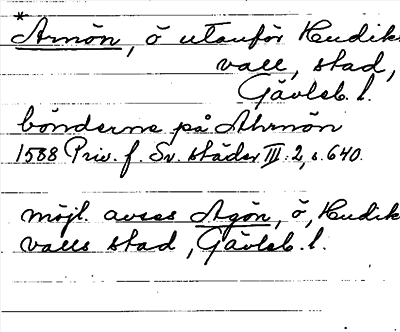 *Arnön, ö utanför Hudiks
vall, stad,
Gävleb. l.
bönderne på Ahrnön
1588 Priv. f. Sv. städer III:2, s. 640.
möjl. avses Agön, ö, Hudik
valls stad, Gävleb. l.